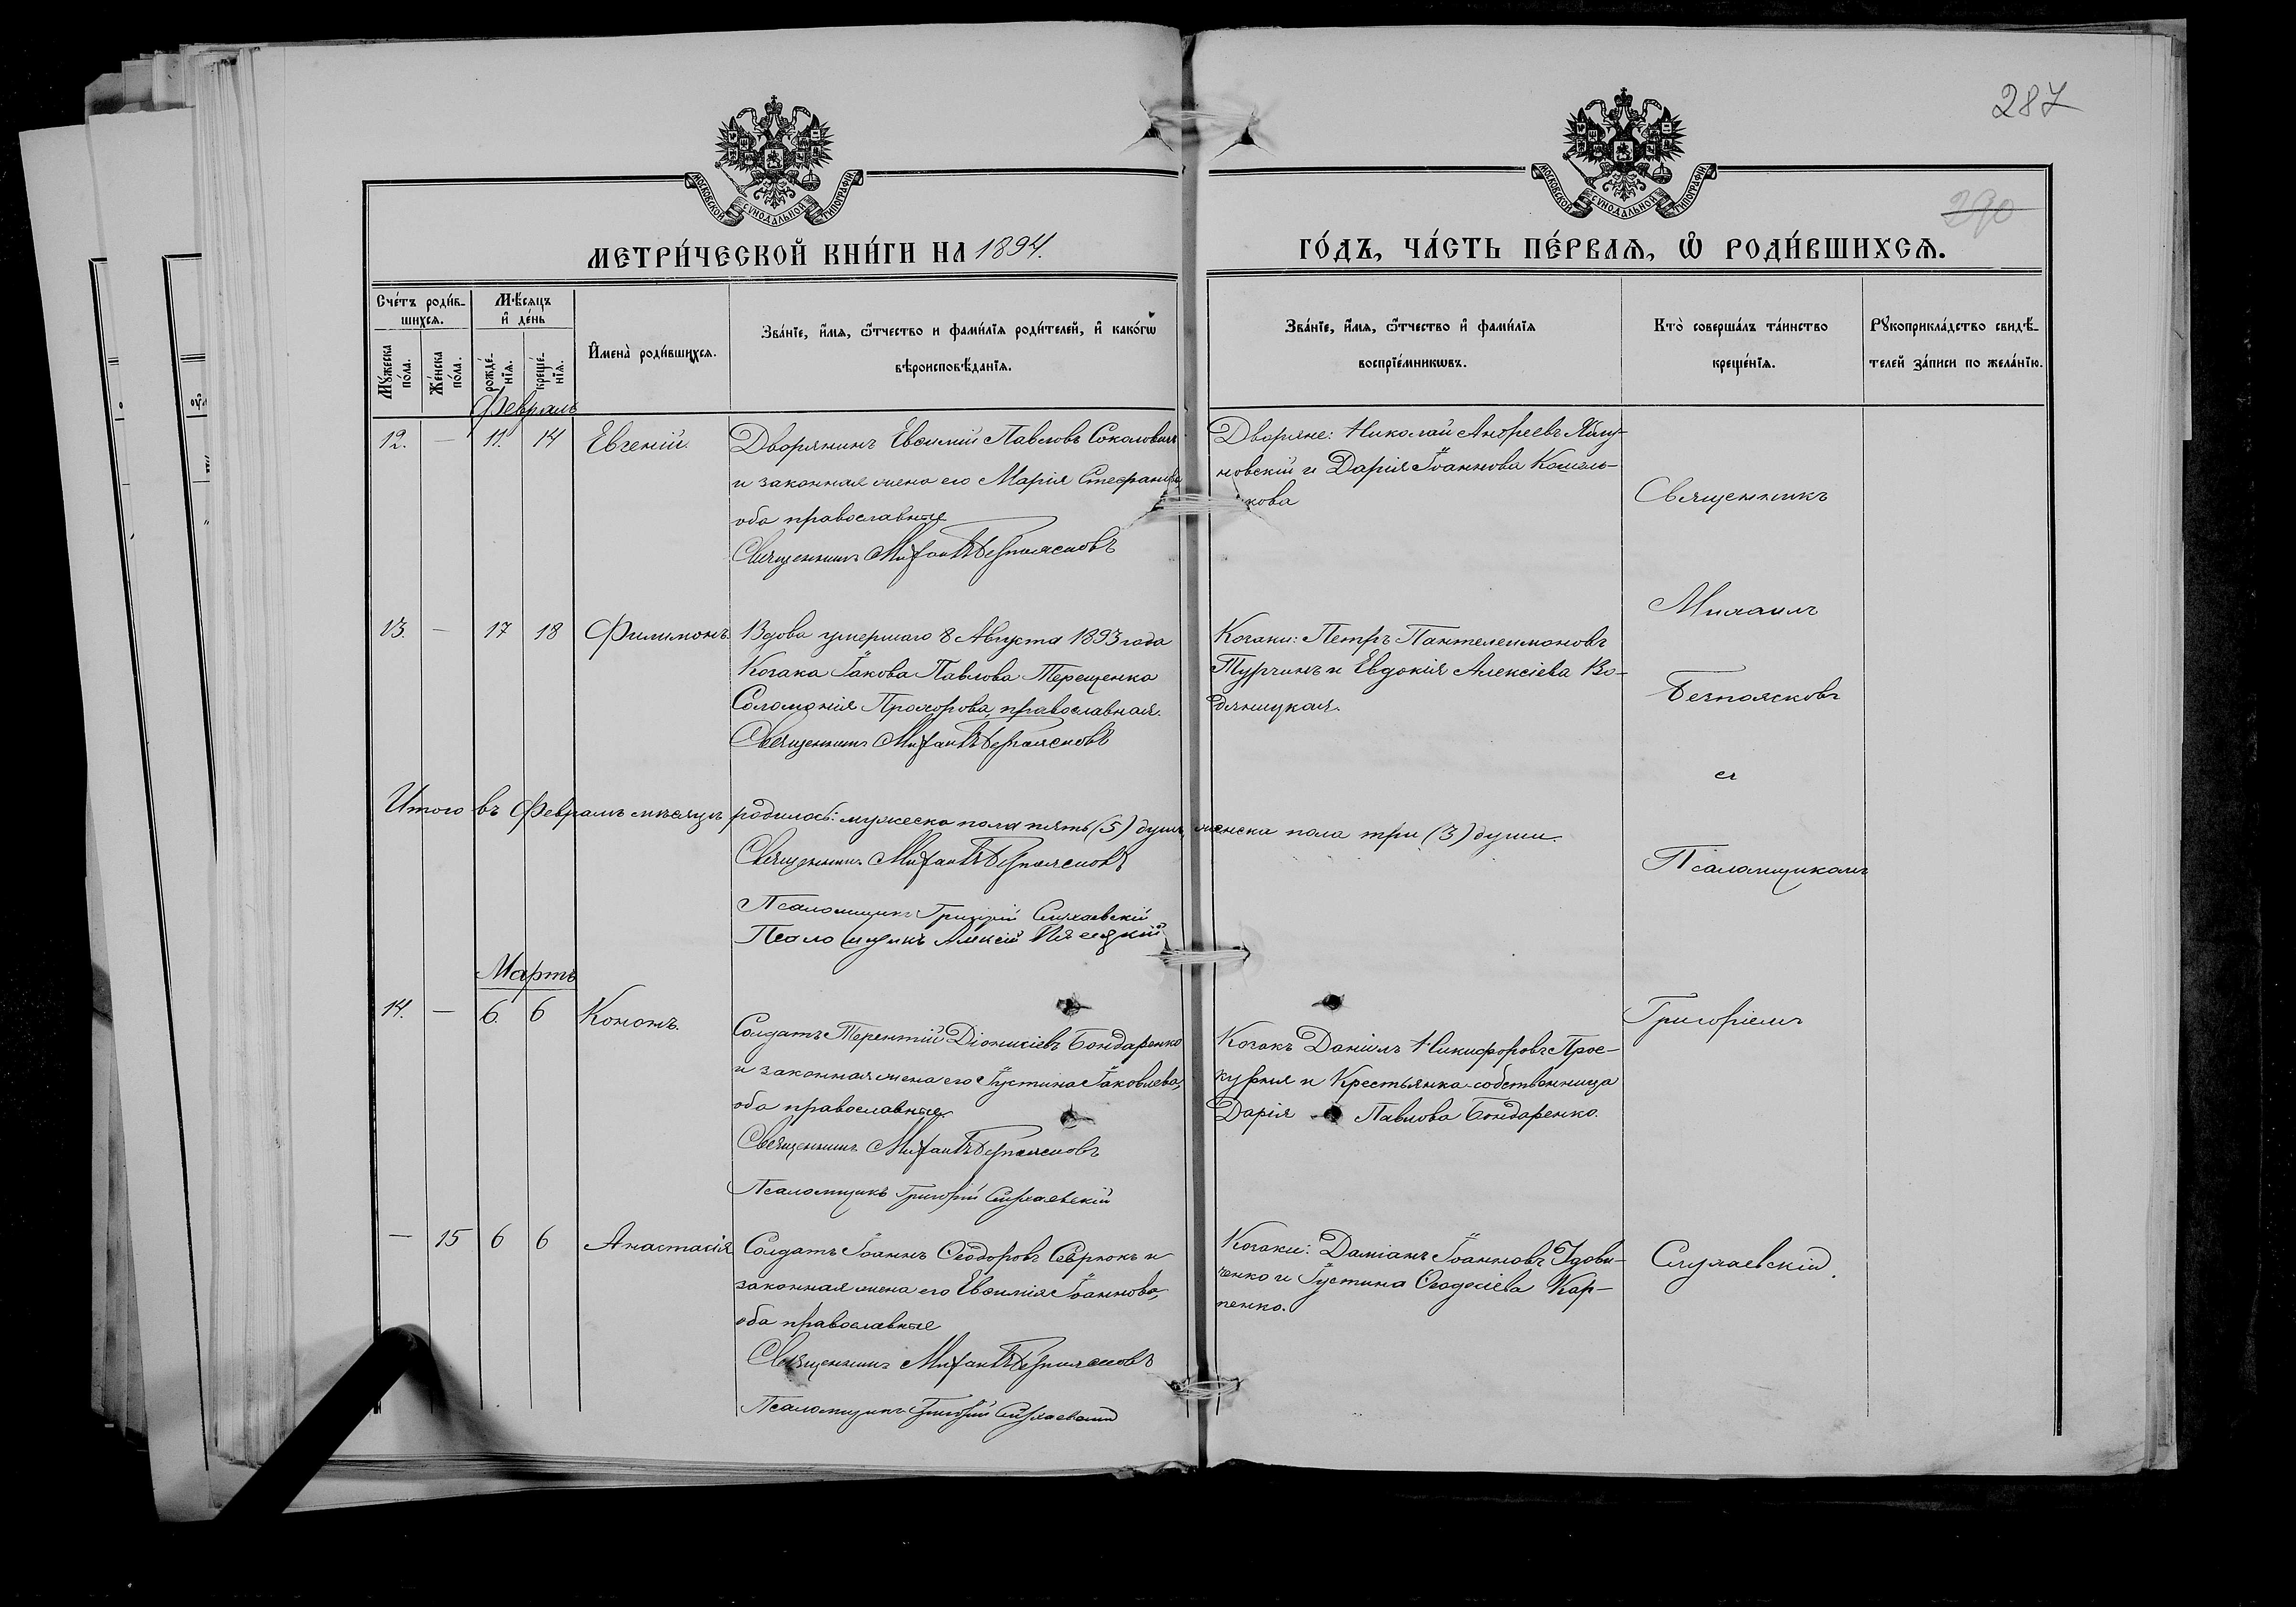 287
290
МОСКОВСКОЙ СѴНОДАЛЬНОЙ ТИПОГРАФІИ
МОСКОВСКОЙ СѴНОДАЛЬНОЙ ТИПОГРАФІИ
МЕТРИ́ЧЕСКОЙ КНИ́ГИ НА 1894.
ГО́ДЪ, ЧА́СТЬ ПЕ́РВАѦ, Ѽ РОДИ́ВШИХСѦ.
Сче́тъ роди́в-
шихсѧ.
Мѣ́сѧцъ
и҆ де́нь
Мꙋ́жеска
по́ла.
Же́нска
по́ла.
рожде́-
нїѧ.
креще́-
нїѧ.
И҆мена̀ роди́вшихсѧ.
Зва́нїе, и҆́мѧ, ѻ҆́тчество и фами́лїѧ роди́телей, и҆ како́гѡ
вѣроисповѣ́данїѧ.
Зва́нїе, и҆́мѧ, ѻ҆́тчество и҆ фами́лїѧ
воспрїе́мникѡвъ.
Кто̀ соверша́лъ та́инство
креще́нїѧ.
Рꙋкоприкла́дство свидѣ́-
телей за́писи по жела́нїю.
Февраль
12. — 11. 14 Евгеній.
Дворянинъ Евѳимій Павловъ Соколовичъ
и законная жена его Марія Стефанова
оба православные
Священникъ Михаилъ Безпоясковъ
Дворяне: Николай Андреевъ
новскій и Дарія Іоаннова Кошель-
кова
Священникъ
Михаилъ
Безпоясковъ
съ
Псаломщикомъ
Григоріемъ
Слухаевскій.
13. — 17 18 Филимонъ.
Вдова умершаго 8 Августа 1893 года
Козака Іакова Павлова Терещенка
Соломонія Прохорова, православная.
Священникъ Михаилъ Безпоясковъ
Козаки: Петръ Пантелеимоновъ
Турчинъ и Евдокія Алексіева Во-
дяницкая.
Итого въ Февралѣ мѣсяцѣ родилось: мужеска пола пять (5) душъ, женска пола три (3) души.
Священникъ Михаилъ Безпоясковъ
Псаломщикъ Григорій Слухаевскій
Псаломщикъ Алексій
Мартъ
14. — 6. 6 Кононъ.
Солдатъ Терентій Діонисіевъ Бондаренко
и законная жена его Іустина Іаковлева,
оба православные
Священникъ Михаилъ Безпоясковъ
Псаломщикъ Григорій Слухаевскій
Козакъ Даніилъ Никифоровъ Прос-
курня и Крестьянка-собственница
Дарія Павлова Бондаренко.
— 15 6 6 Анастасія
Солдатъ Іоаннъ Ѳеодоровъ Севрюкъ и
законная жена его Евѳимія Іоаннова,
оба православные
Священникъ Михаилъ Безпоясковъ
Псаломщикъ Григорій Слухаевскій
Козаки: Даміанъ Іоанновъ Удови-
ченко и Іустина Ѳеодосіева Кар-
пенко.